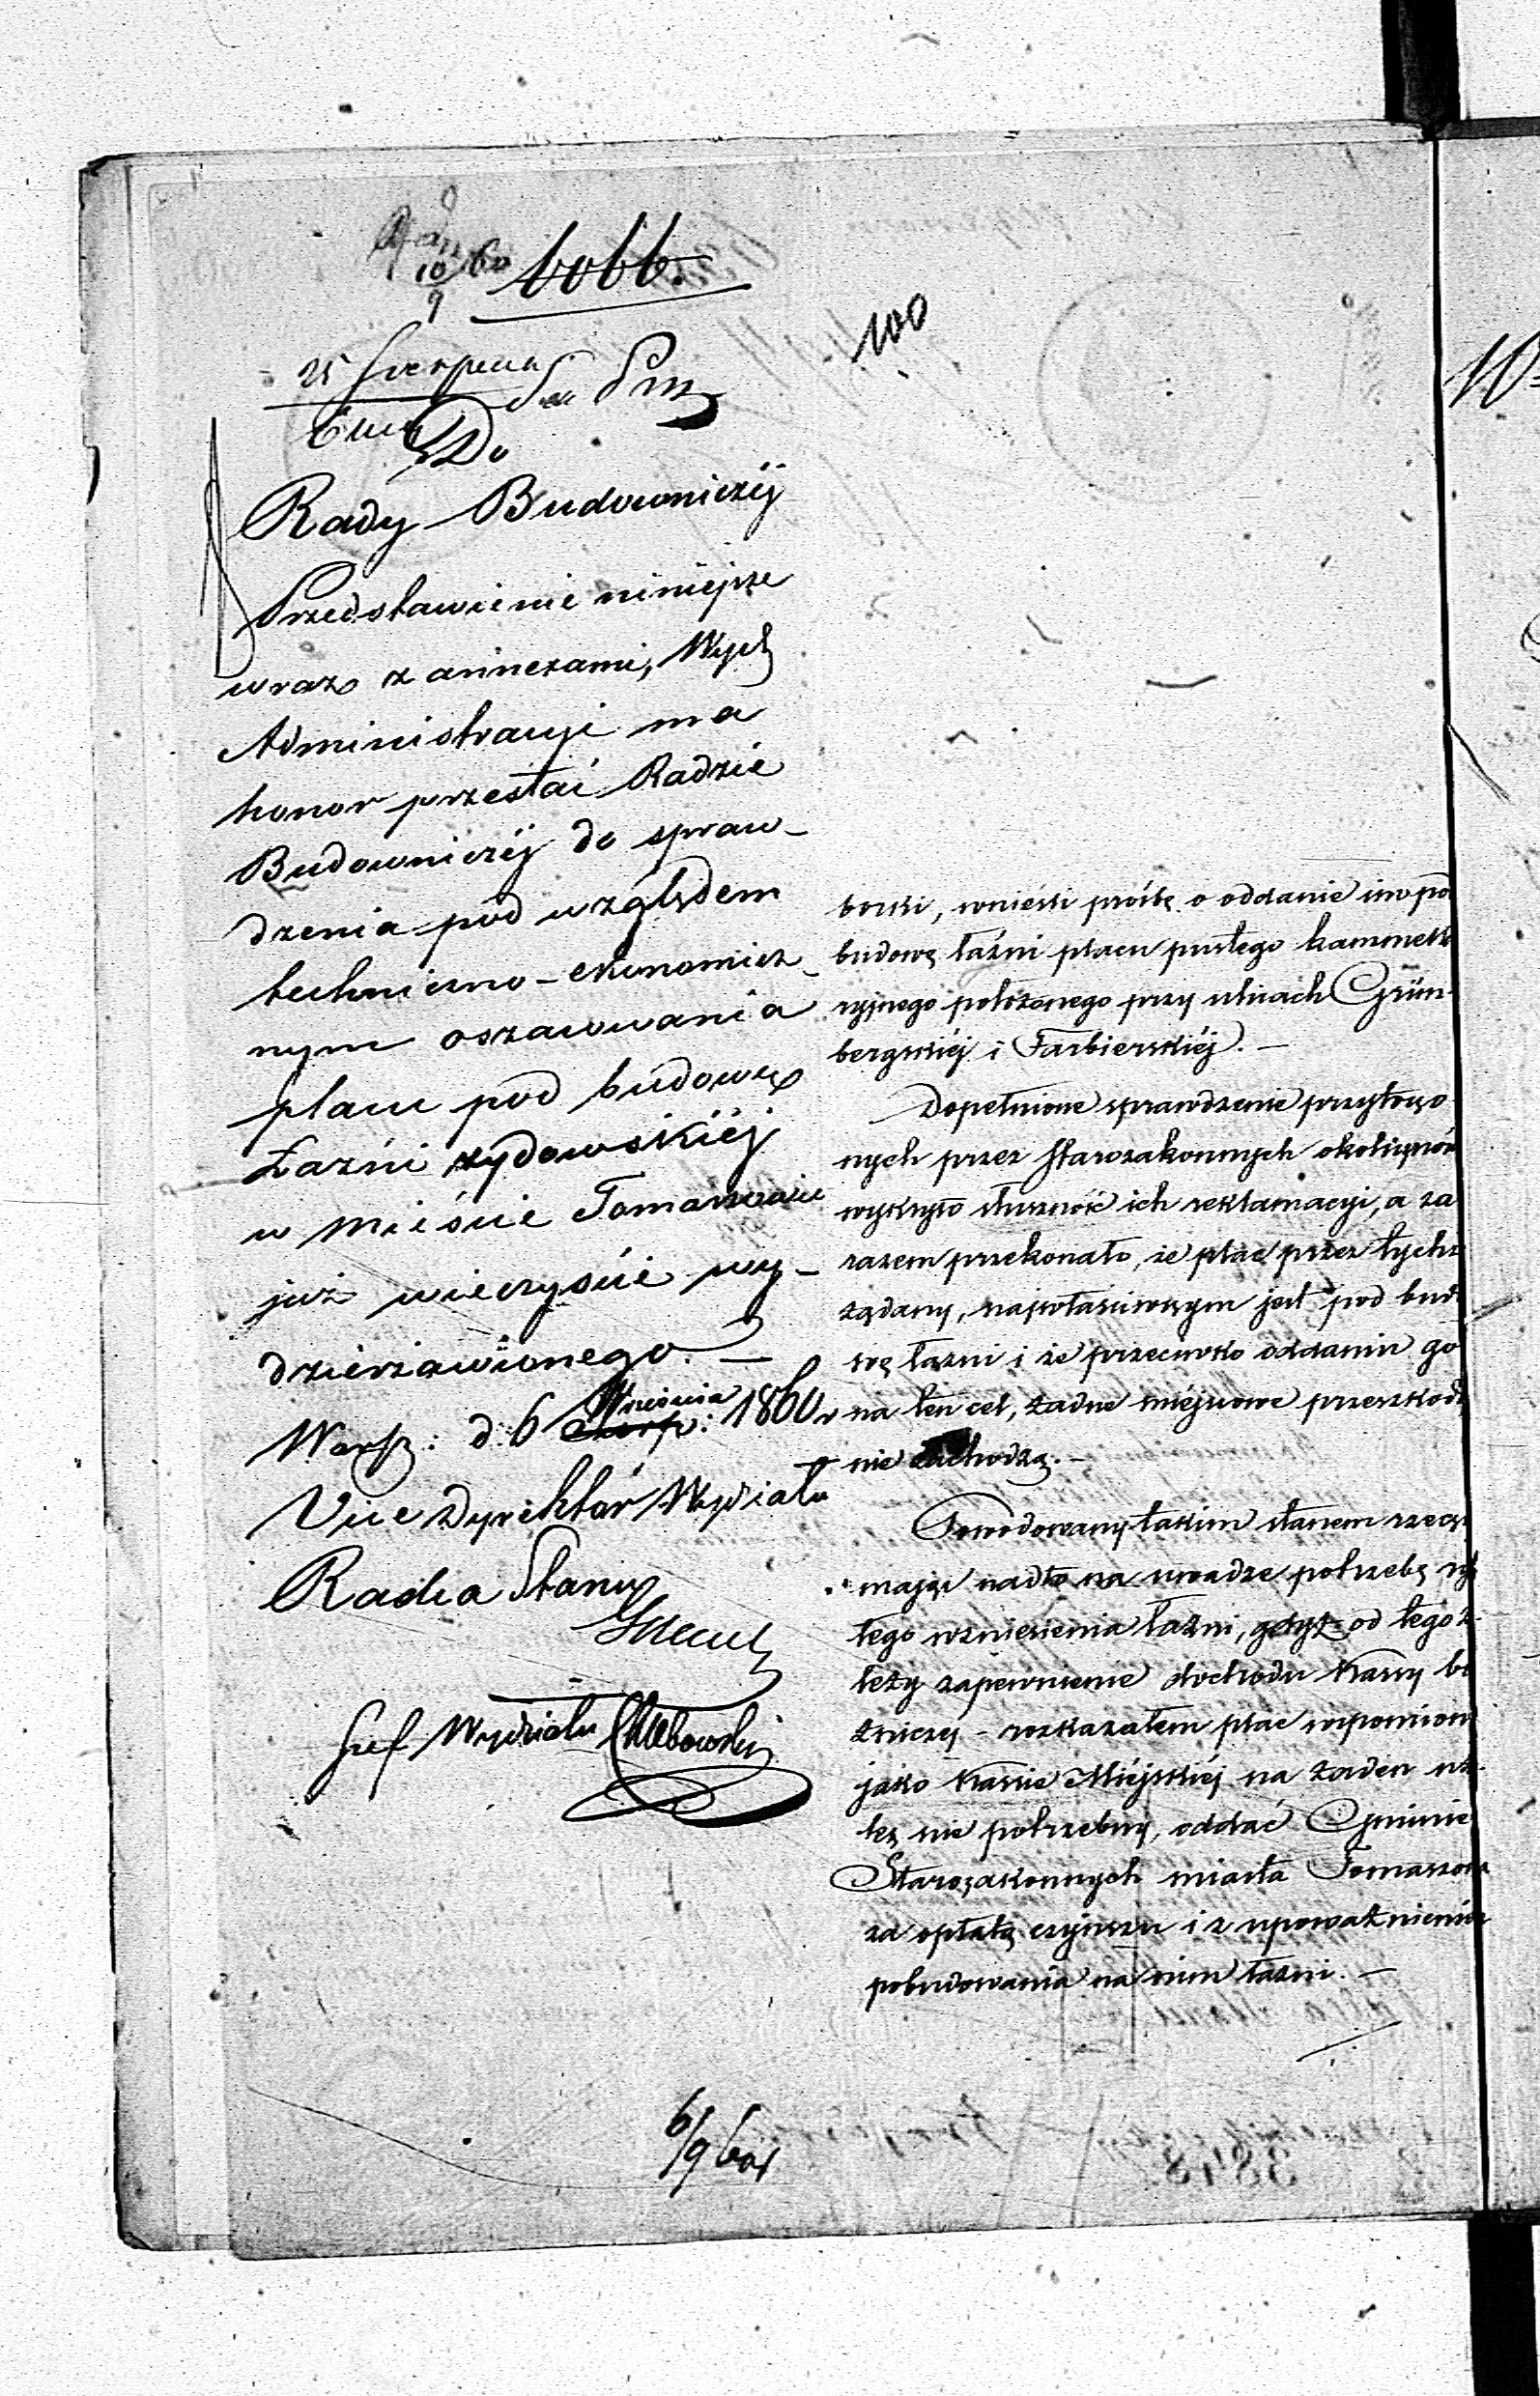 10/9 60
6066.
100
25 Sierpnia
Do
Rady Budowniczéj
Przedstawienie niniejsze
wraz z annexami, Wydz
Administracyi ma
honor przesłać Radzie
Budowniczéj do spraw-
dzenia pod względem
techniczno-ekonomicz-
nym oszacowania
placu pod budowę
Łaźni żydowskiéj
w mieście Tomaszowie
już wieczyście wy-
dzierżawionego. —
Warsz: d. 6 Września 1860 r
Vice Dyrektór Wydziału
Radca Stanu
Szef Wydziału Chlebowski
6/9 60
borski, wnieśli prósbę o oddanie im po
budowę łaźni placu pustego kamme
ryjnego położonego przy ulicach Grün-
bergskiéj i Farbierskiéj. —
Dopełnione sprawdzenie przytoczo-
nych przez Starozakonnych okoliczno
wykryło słuszność ich reklamacyi, a za
razem przekonało, że plac przez tychż
żądany, najwłaściwszym jest pod budo
wę łaźni i że przeciwko oddaniu go
na ten cel, żadne miéjscowe przeszkod
nie zachodzą. —
Powodowany takim stanem rzeczy
mając nadto na uwadze potrzebę ry
łego wzniesienia łaźni, gdyż od tego z-
leży zapewnienie dochodu Kassy bó
żniczéj – rozkazałem plac wspomnion
jako Kassie Miéjskiéj na żaden uż-
tek nie potrzebny, oddać Gminie
Starozakonnych miasta Tomaszowa
za opłatą czynszu i z upoważnieniem
pobudowania na nim łaźni. —